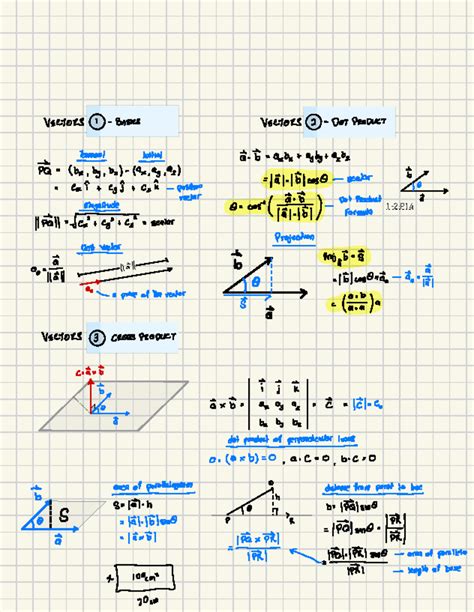 VECTORS ① - BASICS
Terminal Initial
PQ = (bx, by, bz) - (ax, ay, az)
= cx î + cy ĵ + cz k̂ - position vector
Magnitude
||PQ|| = √cx² + cy² + cz² = scalar
Unit vector
a₀ = a / ||a||
||a||
a₀
VECTORS ② - DOT PRODUCT
a · b = axbx + ayby + azbz
= |a|·|b| cosθ - scalar
θ = cos⁻¹ (a · b / |a|·|b|) - Dot Product Formula
b
θ
a
Projection
b
θ
S
a
Proj b = S
= |b| cosθ = a₀ - a₀ = a / |a|
= (a · b / a · a) a
VECTORS ③ CROSS PRODUCT
b
θ
a
a × b = | i j k | = c = |c| = c₀
ax ay az
bx by bz
dot product of perpendicular lines
a · (a × b) = 0 , a · c = 0 , b · c = 0
area of parallelogram
b
θ
S
a
S = |a| · h
= |a|·|b| sinθ
= |a × b|
Q
h
P
θ
R
= |PQ × PR| / |PR|
distance from point to line
h = |PQ| sinθ
= |PQ| sinθ · |PR| / |PR|
= |PQ|·|PR| sinθ / |PR|
- area of parallelo
- length of base